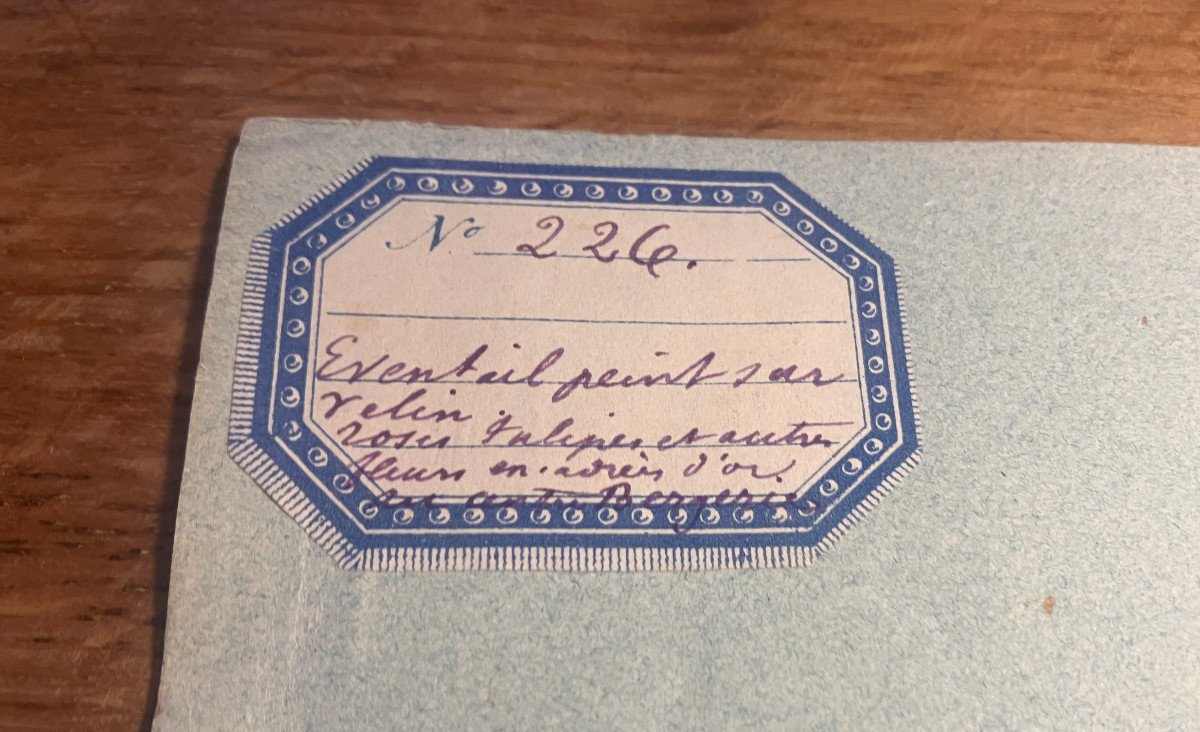 No 226.
Eventail peint sur
velin.
roses tulipes et autres
fleurs en d'or.
au centre Bergerie